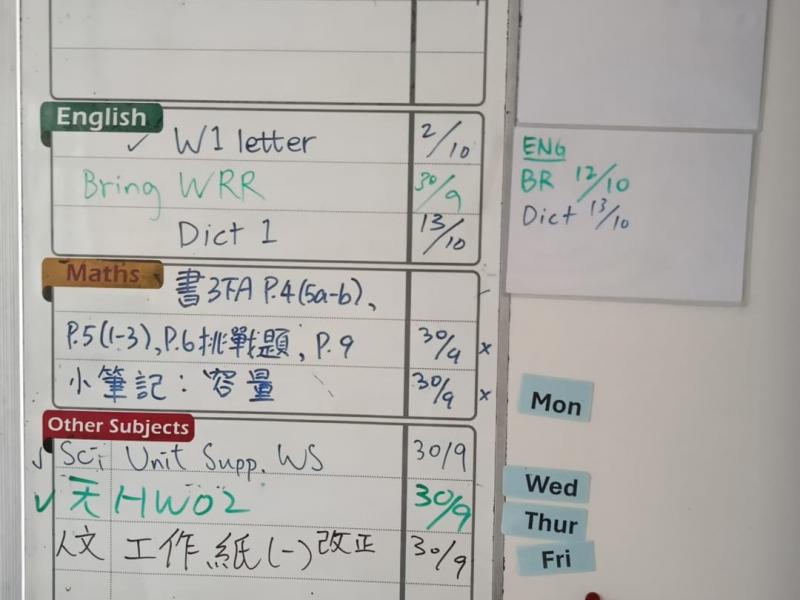 English
✓ W1 letter 2/10
Bring WRR 30/9
Dict 1 13/10
Maths
書3下A P.4(5a-b)、
P.5(1-3),P.6挑戰題, P.9 30/9 x
小筆記：容量 30/9 x
Other Subjects
✓ Sci Unit Supp. WS 30/9
✓ 天 HW02 30/9
人文 工作紙(一)改正 30/9
ENG
BR 12/10
Dict 13/10
Mon
Wed
Thur
Fri